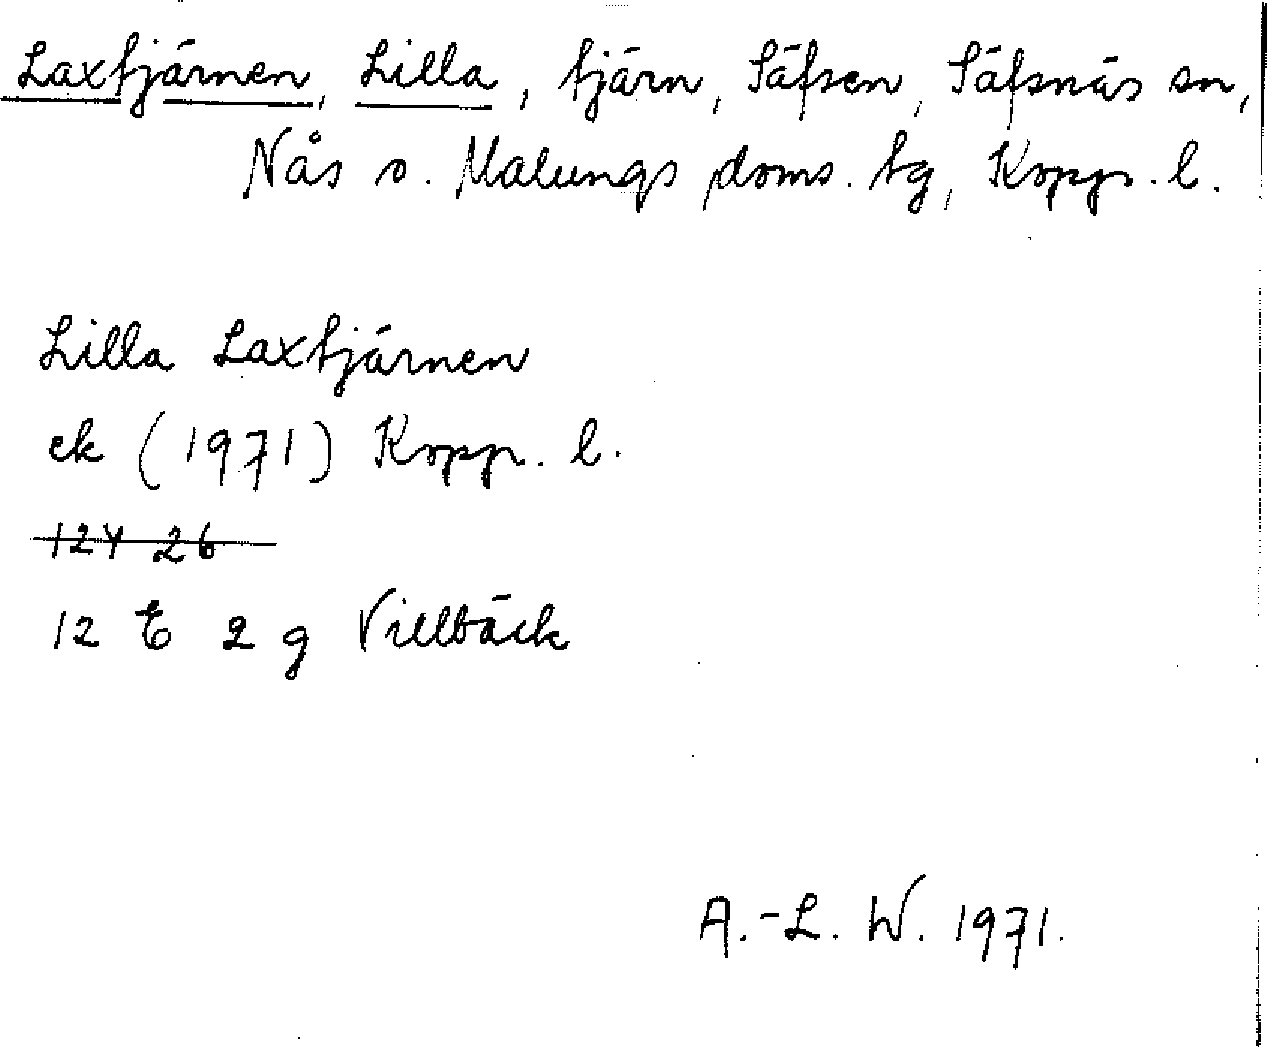 Laxtjärnen, Lilla, tjärn, Säfsen, Säfsnäs sn,
Nås o. Malungs doms. tg, Kopp. l.
Lilla Laxtjärnen
ek (1971) Kopp. l.
12Y 26
12 E 2 g Villbäck
A.-L. W. 1971.